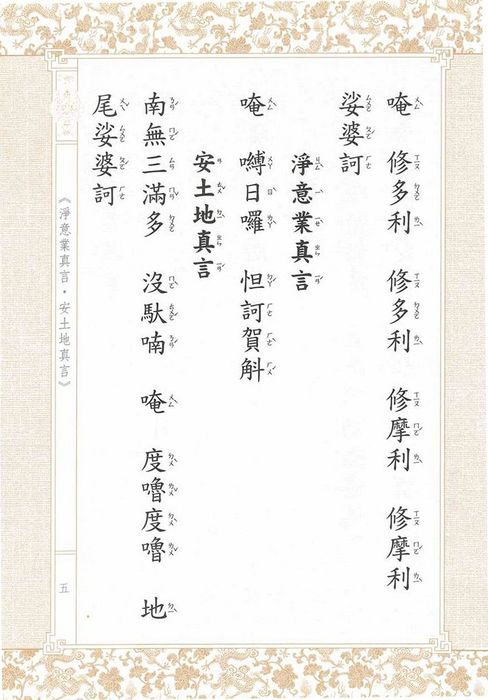 唵　修多利　修多利　修摩利　修摩利
娑婆訶
淨意業真言
唵　嚩日囉　怛訶賀斛
安土地真言
南無三滿多　沒馱喃　唵　度嚕度嚕　地
尾娑婆訶
《淨意業真言・安土地真言》
五